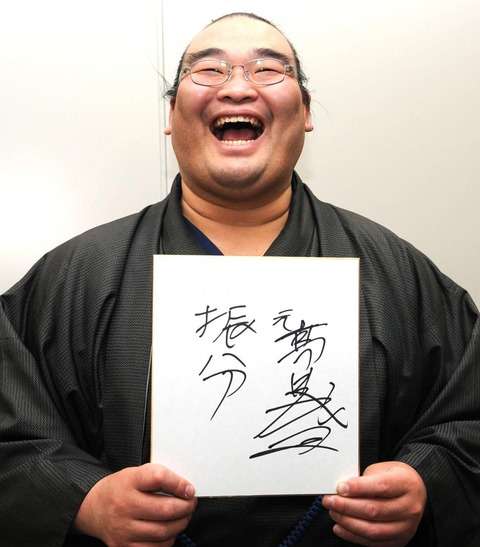 元高見盛
振分